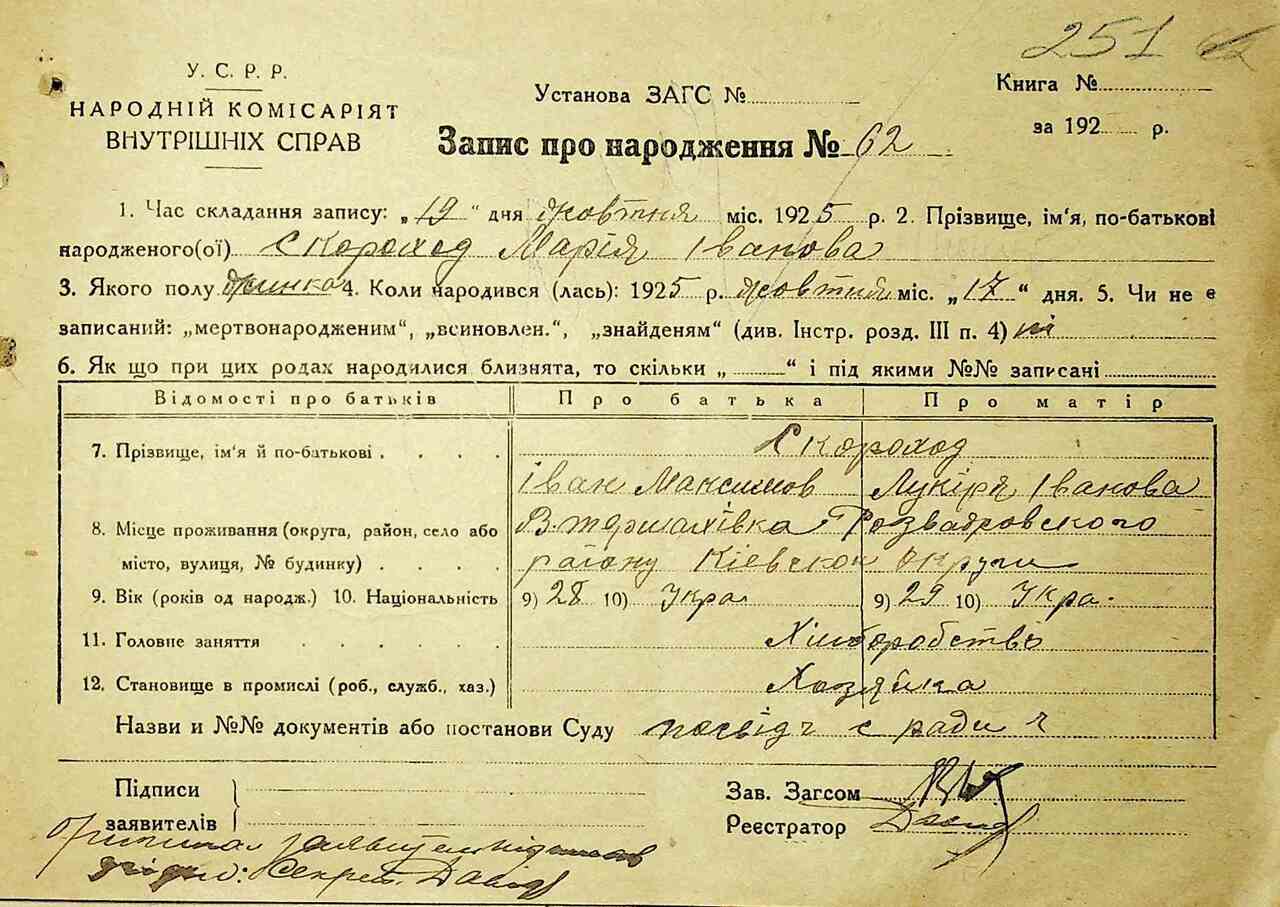 251
У. С. Р. Р.
НАРОДНІЙ КОМІСАРІЯТ
ВНУТРІШНІХ СПРАВ
Установа ЗАГС №
Книга №
за 192 р.
Запис про народження № 62
1. Час складання запису: „19“ дня жовтня міс. 1925 р. 2. Прізвище, ім'я, по-батькові
народженого(ої) Скороход Марія Іванова
3. Якого полу жинка 4. Коли народився (лась): 1925 р. жовтня міс. „17“ дня. 5. Чи не є
записаний: „мертвонародженим“, „всиновлен.“, „знайденям“ (див. Інстр. розд. III п. 4) ні
6. Як що при цих родах народилися близнята, то скільки „ “ і під якими №№ записані
Відомості про батьків Про батька Про матір
7. Прізвище, ім'я й по-батькові . . . . Скороход
Іван Максимов Лукіря Іванова
8. Місце проживання (округа, район, село або
місто, вулиця, № будинку) . . . . району Кіевской округи
9. Вік (років од народж.) 10. Національність 9) 28 10) Укра. 9) 29 10) Укра.
11. Головне заняття . . . . . Хліборобство
12. Становище в промислі (роб., служб., хаз.) Хазяйка
Назви и №№ документів або постанови Суду посвідч с ради
Підписи
заявителів
Зав. Загсом
Реєстратор
Секрет.